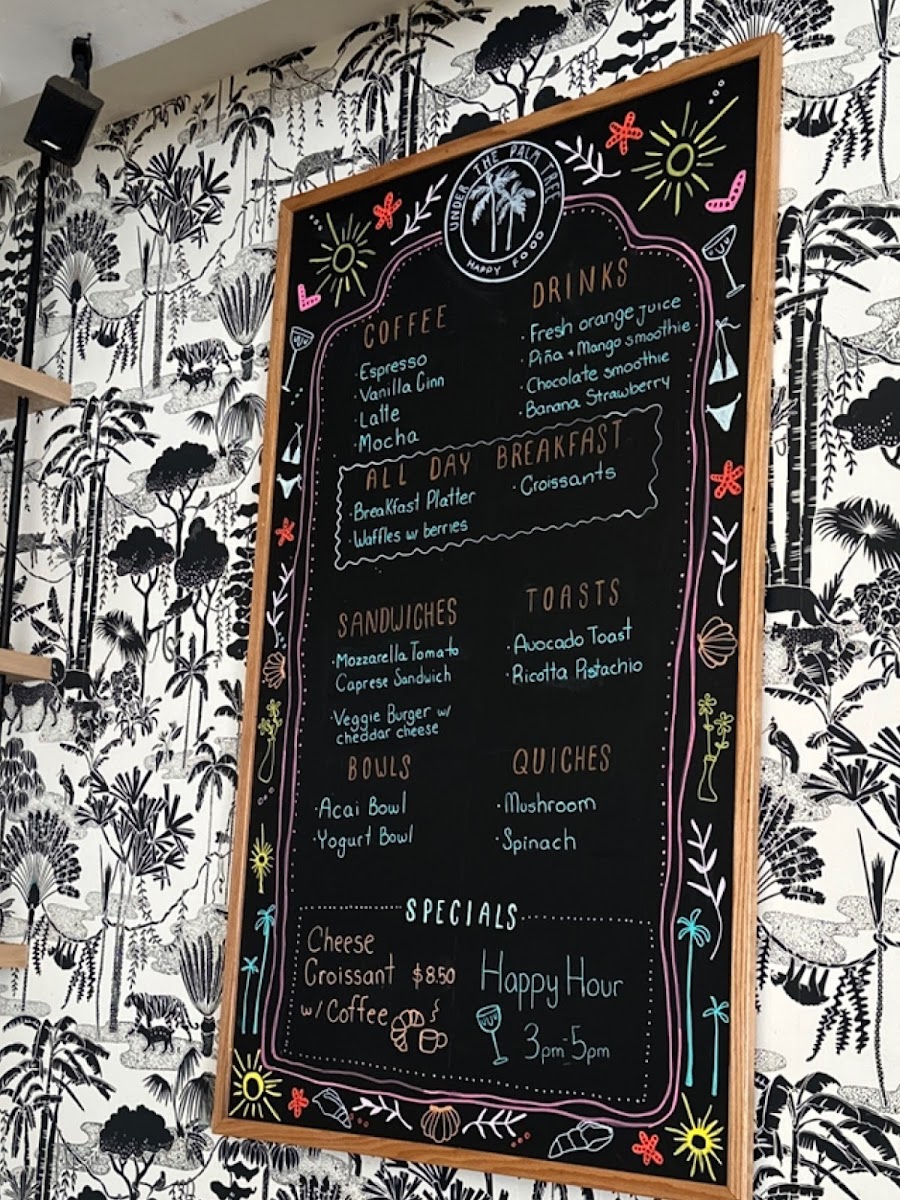 UNDER THE PALM TREE
HAPPY FOOD
COFFEE
· Espresso
· Vanilla Cinn
· Latte
· Mocha
DRINKS
· Fresh orange juice
· Piña + Mango smoothie
· Chocolate smoothie
· Banana Strawberry
ALL DAY BREAKFAST
· Breakfast Platter
· Waffles w/ berries
· Croissants
SANDWICHES
· Mozzarella Tomato
Caprese Sandwich
· Veggie Burger w/
cheddar cheese
TOASTS
· Avocado Toast
· Ricotta Pistachio
BOWLS
· Acai Bowl
· Yogurt Bowl
QUICHES
· Mushroom
· Spinach
SPECIALS
Cheese
Croissant $8.50
w/ Coffee
Happy Hour
3pm-5pm